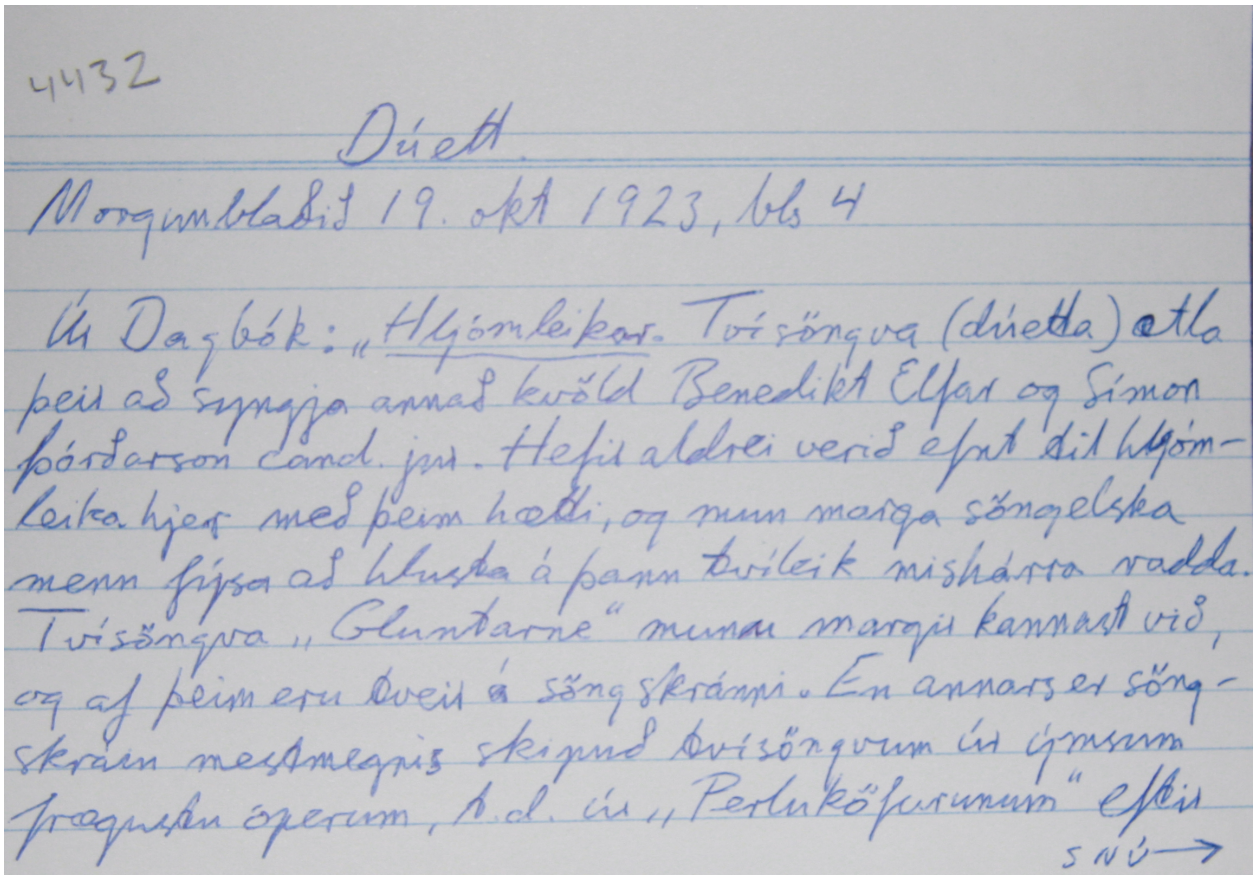 4432
Dúett.
Morgunblaðið 19. okt 1923, bls 4
Úr Dagbók: „Hljómleikar. Tvísöngva (dúetta) ætla
þeir að syngja annað kvöld Benedikt Elfar og Símon
Þórðarson cand. jur. Hefir aldrei verið efnt til hljóm-
leika hjer með þeim hætti, og mun marga söngelska
menn fýsa að hlusta á þann tvíleik mishárra radda.
Tvísöngva „Gluntarne“ munu margir kannast við,
og af þeim eru tveir á söngskránni. En annars er söng-
skráin mestmegnis skipuð tvísöngvum úr ýmsum
frægustu óperum, t.d. úr „Perluköfurunum“ eftir
SNÚ→